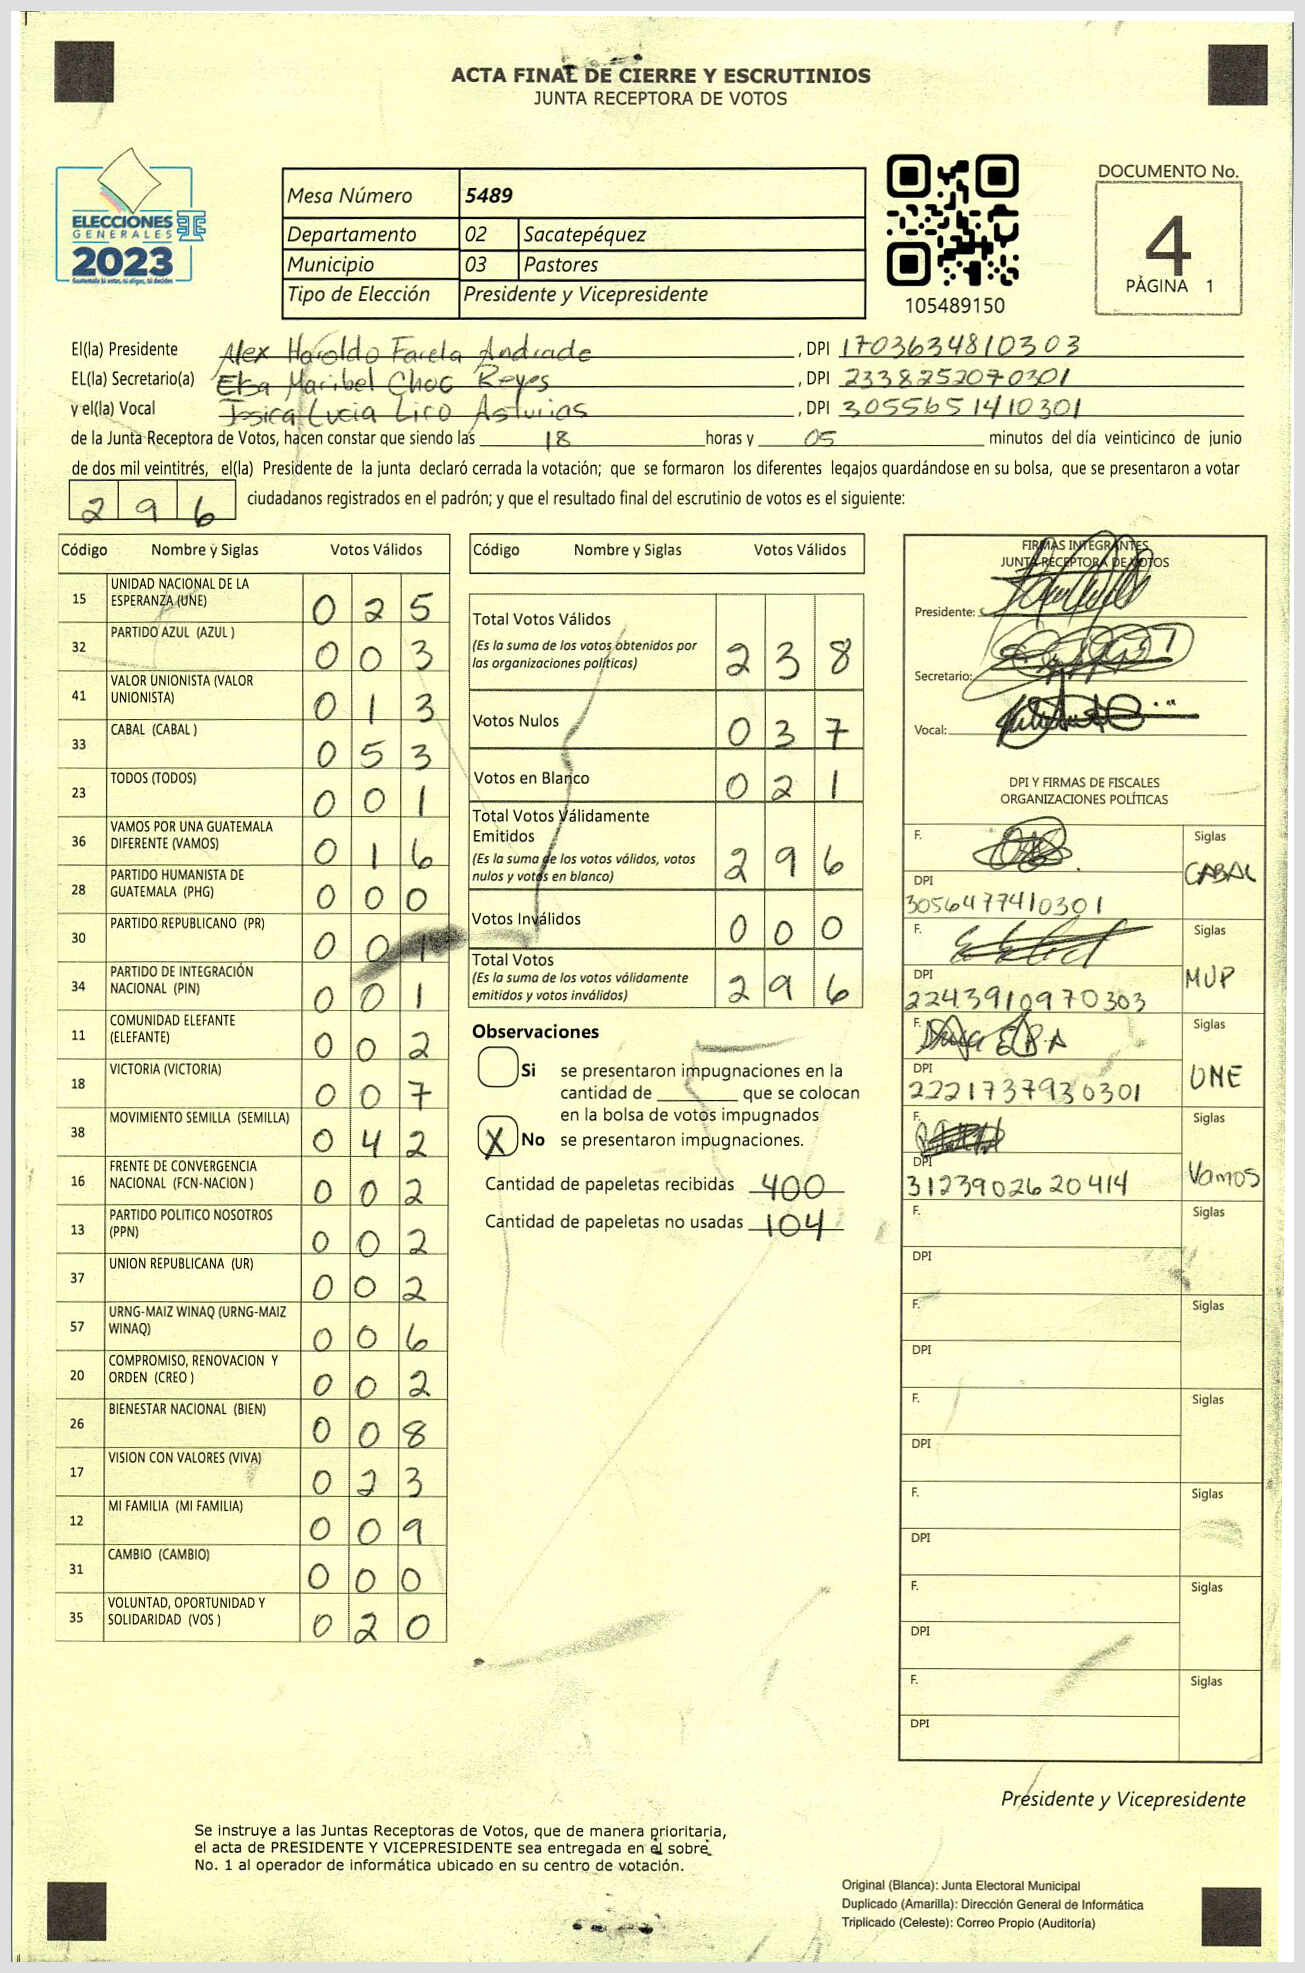 ACTA FINAL DE CIERRE Y ESCRUTINIOS
JUNTA RECEPTORA DE VOTOS
ELECCIONES
GENERALES
2023
Mesa Número 5489
Departamento 02 Sacatepéquez
Municipio 03 Pastores
Tipo de Elección Presidente y Vicepresidente
105489150
DOCUMENTO No.
4
PÀGINA 1
El(la) Presidente Alex Haroldo Farela Andrade, DPI 1703634810303
EL(la) Secretario(a) Elsa Maribel Choc Reyes, DPI 2338252070301
y el(la) Vocal Jesica Lucia Liro Asturias, DPI 3055651410301
de la Junta Receptora de Votos, hacen constar que siendo las 18 horas y 05 minutos del día veinticinco de junio
de dos mil veintitrés, el(la) Presidente de la junta declaró cerrada la votación; que se formaron los diferentes legajos guardándose en su bolsa, que se presentaron a votar
296 ciudadanos registrados en el padrón; y que el resultado final del escrutinio de votos es el siguiente:
Código Nombre y Siglas Votos Válidos
15 UNIDAD NACIONAL DE LA ESPERANZA (UNE) 025
32 PARTIDO AZUL (AZUL ) 003
41 VALOR UNIONISTA (VALOR UNIONISTA) 013
33 CABAL (CABAL ) 053
23 TODOS (TODOS) 001
36 VAMOS POR UNA GUATEMALA DIFERENTE (VAMOS) 016
28 PARTIDO HUMANISTA DE GUATEMALA (PHG) 000
30 PARTIDO REPUBLICANO (PR) 001
34 PARTIDO DE INTEGRACIÓN NACIONAL (PIN) 001
11 COMUNIDAD ELEFANTE (ELEFANTE) 002
18 VICTORIA (VICTORIA) 007
38 MOVIMIENTO SEMILLA (SEMILLA) 042
16 FRENTE DE CONVERGENCIA NACIONAL (FCN-NACION ) 002
13 PARTIDO POLITICO NOSOTROS (PPN) 002
37 UNION REPUBLICANA (UR) 002
57 URNG-MAIZ WINAQ (URNG-MAIZ WINAQ) 006
20 COMPROMISO, RENOVACION Y ORDEN (CREO ) 002
26 BIENESTAR NACIONAL (BIEN) 008
17 VISION CON VALORES (VIVA) 023
12 MI FAMILIA (MI FAMILIA) 009
31 CAMBIO (CAMBIO) 000
35 VOLUNTAD, OPORTUNIDAD Y SOLIDARIDAD (VOS ) 020
Código Nombre y Siglas Votos Válidos
Total Votos Válidos
(Es la suma de los votos obtenidos por
las organizaciones políticas) 238
Votos Nulos 037
Votos en Blanco 021
Total Votos Válidamente
Emitidos
(Es la suma de los votos válidos, votos
nulos y votos en blanco) 296
Votos Inválidos 000
Total Votos
(Es la suma de los votos válidamente
emitidos y votos inválidos) 296
Observaciones
Si se presentaron impugnaciones en la
cantidad de ________ que se colocan
en la bolsa de votos impugnados
X No se presentaron impugnaciones.
Cantidad de papeletas recibidas 400
Cantidad de papeletas no usadas 104
FIRMAS INTEGRANTES
JUNTA RECEPTORA DE VOTOS
Presidente:
Secretario:
Vocal:
DPI Y FIRMAS DE FISCALES
ORGANIZACIONES POLÍTICAS
F. Siglas
CABAL
DPI
3056477410301
F. Siglas
MUP
DPI
2243910970303
F. Siglas
UNE
DPI
2221737930301
F. Siglas
Vamos
DPI
3123902620414
F. Siglas
DPI
F. Siglas
DPI
F. Siglas
DPI
F. Siglas
DPI
F. Siglas
DPI
F. Siglas
DPI
Presidente y Vicepresidente
Se instruye a las Juntas Receptoras de Votos, que de manera prioritaria,
el acta de PRESIDENTE Y VICEPRESIDENTE sea entregada en el sobre
No. 1 al operador de informática ubicado en su centro de votación.
Original (Blanca): Junta Electoral Municipal
Duplicado (Amarilla): Dirección General de Informática
Triplicado (Celeste): Correo Propio (Auditoría)